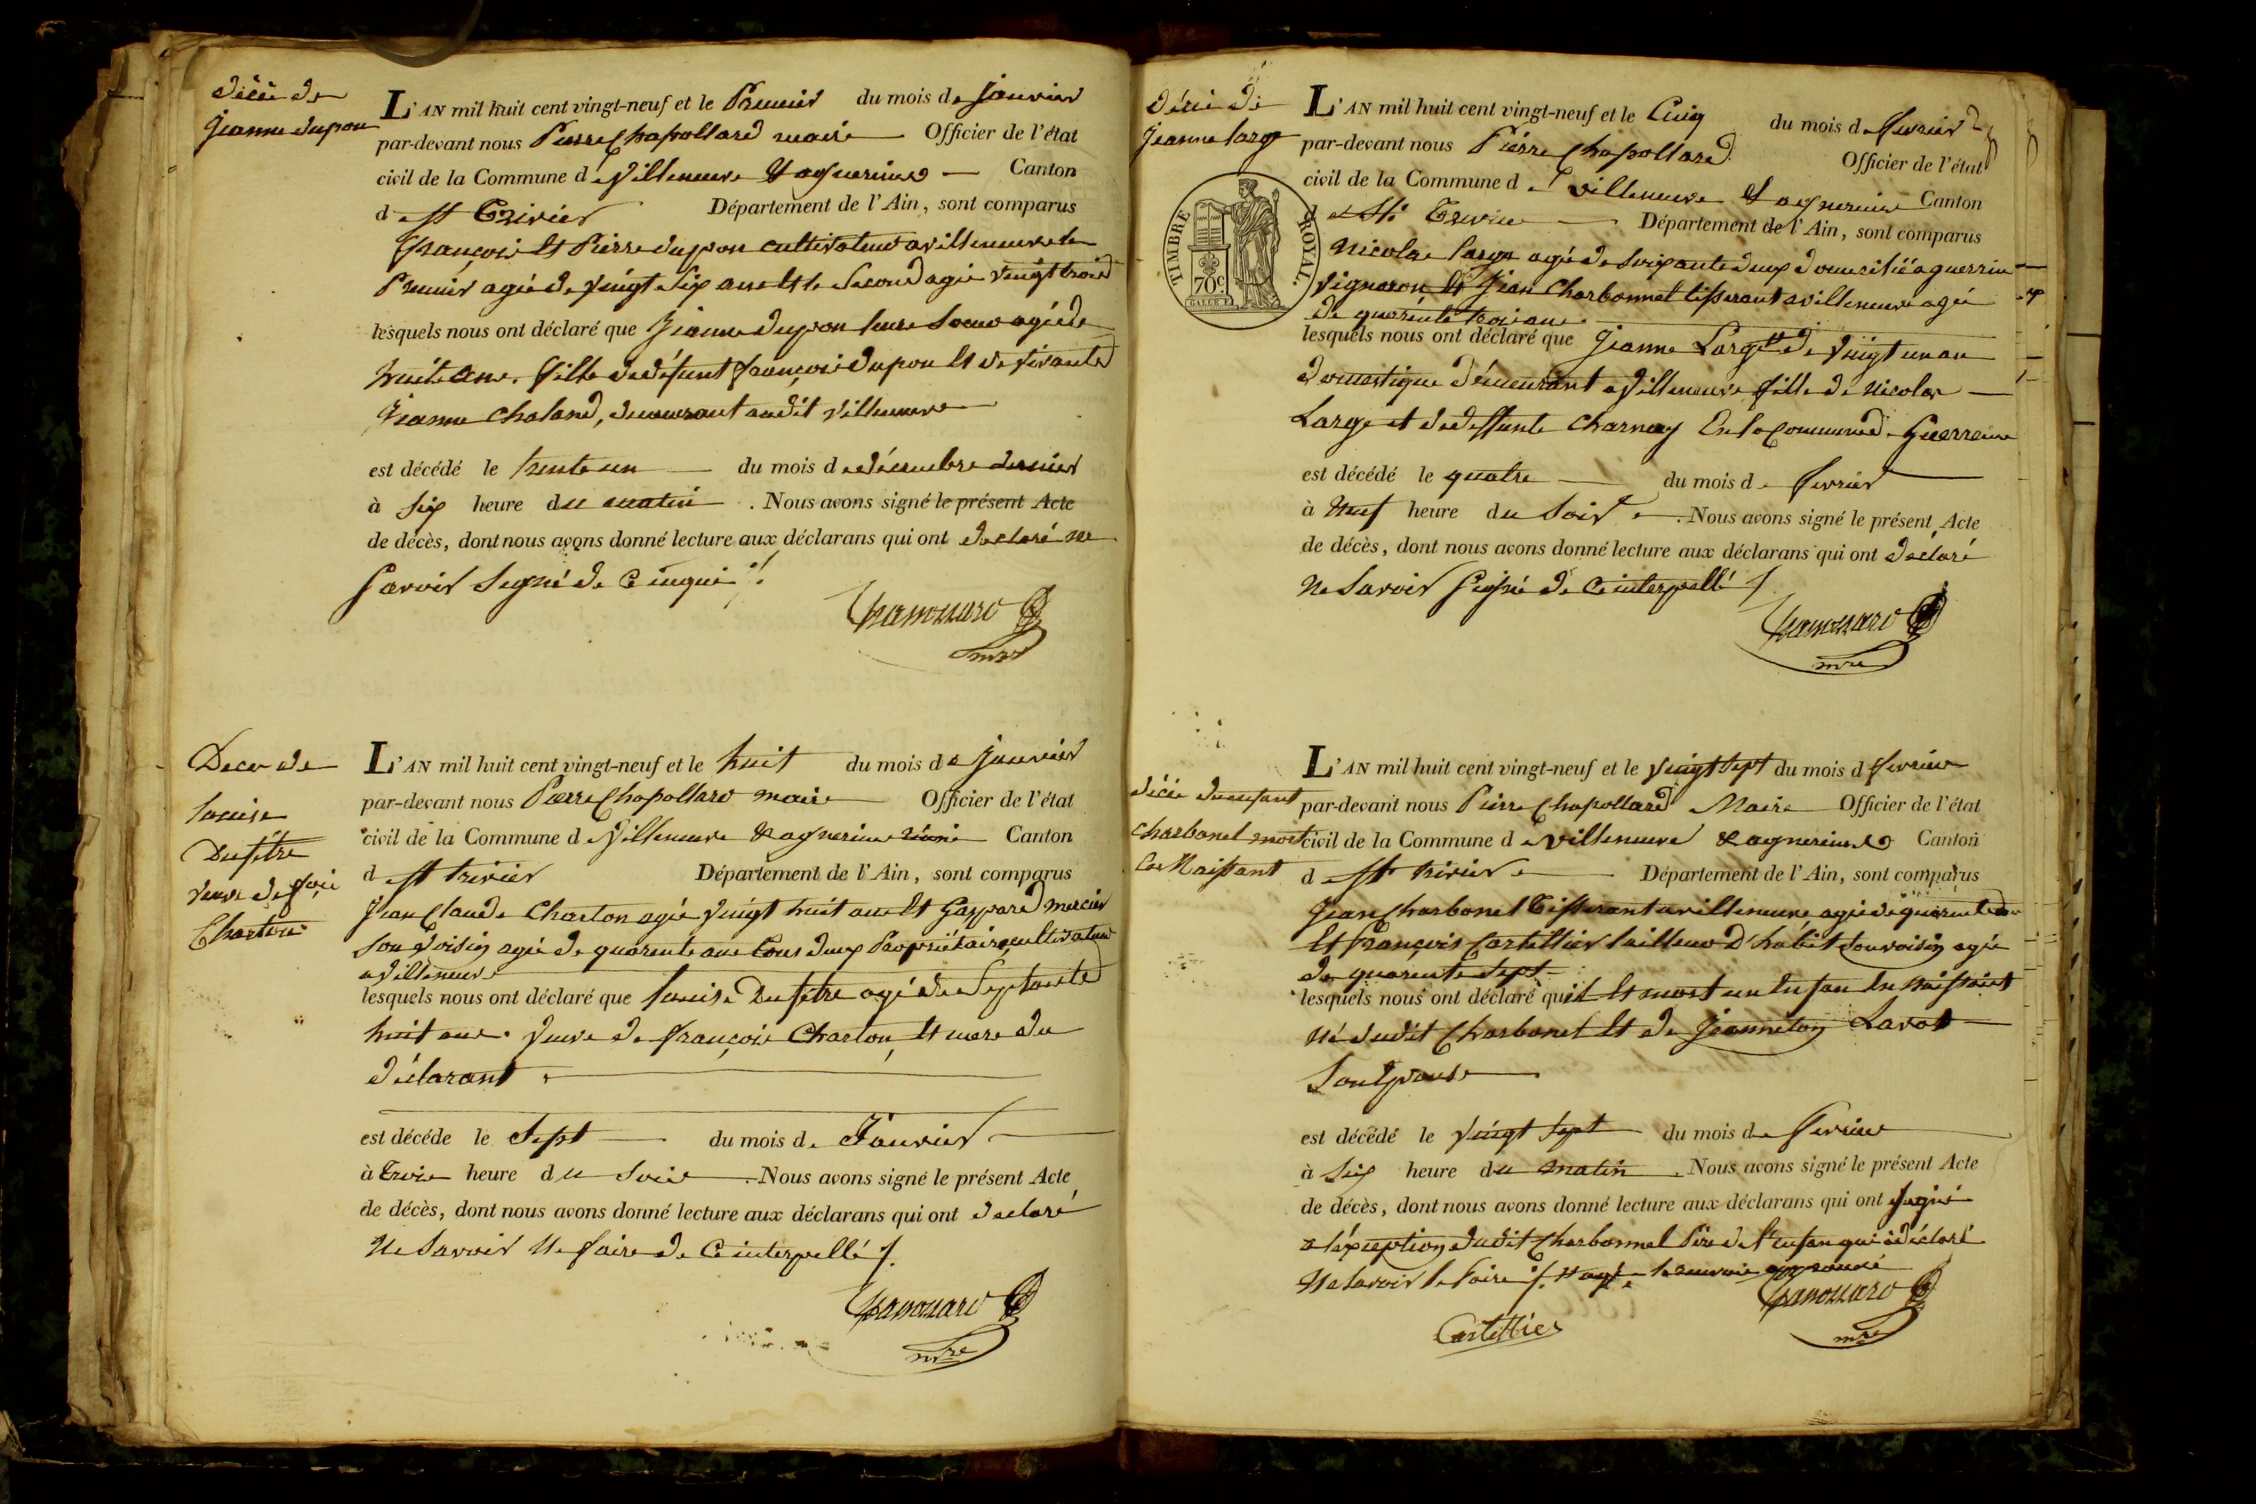 décès de
Jeanne dupon
L'AN mil huit cent vingt-neuf et le Premier du mois de Janvier
par-devant nous Pierre Chapollard maire Officier de l'état
civil de la Commune de Villeneuve & agnereins Canton
de St Trivier Département de l'Ain, sont comparus
françois et Pierre dupon cultivateur a villeneuve le
Premier agée de vingt Six ans et le Second agée vingt trois
lesquels nous ont déclaré que Jeanne dupon leure Soeur agée de
huite ans. fille de défunt françois dupon et de vivante
Jeanne Chaland, demeurant audit villeneuve
est décédé le trente un du mois de décembre dernier
à Six heure du matin . Nous avons signé le présent Acte
de décès, dont nous avons donné lecture aux déclarans qui ont declaré ne
Savoir Signé de ce inqui
Chapollard
mre
Deces de
Louise
Dufêtre
veuve de
Charton
L'AN mil huit cent vingt-neuf et le huit du mois de Janvier
par-devant nous Pierre Chapollard maire Officier de l'état
civil de la Commune de Villeneuve & agnereins réuni Canton
de St trivier Département de l'Ain, sont comparus
Jean Claude Charton agée vingt huit ans et Gaspard mercier
Son voisin agée de quarente ans tous deux Propriétaire cultivateur
a villeneuve
lesquels nous ont déclaré que Louise Dufêtre agé de Septante
huit ans. veuve de françois Charton et mere du
déclarant
est décéde le Sept du mois de Janvier
à trois heure du Soir . Nous avons signé le présent Acte
de décès, dont nous avons donné lecture aux déclarans qui ont declaré
Ne Savoir le faire de ce interpellé
Chapollard
mre
Décès de
Jeanne large
TIMBRE ROYAL.
70c
L'AN mil huit cent vingt-neuf et le Cinq du mois de fevrier
par-devant nous Pierre Chapollard Officier de l'état
civil de la Commune de villeneuve & agnereins Canton
de St Trivier Département de l'Ain, sont comparus
Nicolas large agé de Soixante deux domicilié a guerrein
Vigneron et Jean Charbonnet tisserant a villeneuve agée
de quarente trois ans.
lesquels nous ont déclaré que Jeanne Large de vingt un an
domestique demeurant a villeneuve fille de Nicolas
Large et de deffunte Charnay En la Commune de Guerreins
est décédé le quatre du mois de fevrier
à Neuf heure du Soir . Nous avons signé le présent Acte
de décès, dont nous avons donné lecture aux déclarans qui ont déclaré
Ne Savoir Signé de ce interpellé
Chapollard
mre
décès du enfant
Charbonel mort
en Naissant
L'AN mil huit cent vingt-neuf et le vingt Sept du mois d fevrier
par-devant nous Pierre Chapollard Maire Officier de l'état
civil de la Commune de villeneuve & agnereins Canton
de St trivier Département de l'Ain, sont comparus
Jean Charbonel Tisserant a villeneuve agée de quarente
et François Cartellier tailleur D'habit Son voisin agée
de quarente Sept
lesquels nous ont déclaré quil et mort un enfan en naissant
né dudit Charbonel et de Jeanneton Lavot
Son Epouse
est décédé le vingt Sept du mois de fevrier
à Six heure du matin . Nous avons signé le présent Acte
de décès, dont nous avons donné lecture aux déclarans qui ont Signé
a lexception dudit Charbonnel Père de l'enfan qui a déclaré
Ne Savoir le faire le renvoie approuvé
Cartellier
Chapollard
mre